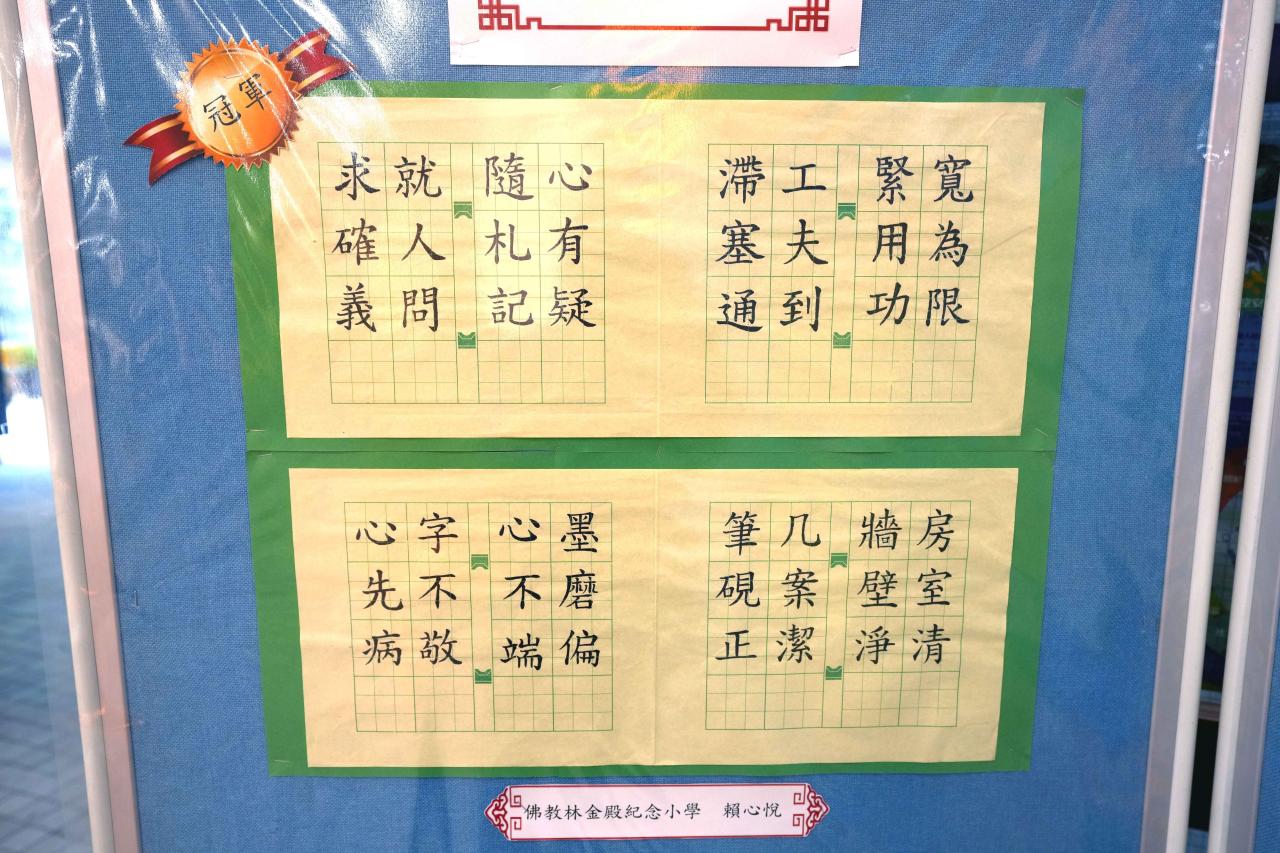 冠軍
寬為限
緊用功
工夫到
滯塞通
心有疑
隨札記
就人問
求確義
房室清
牆壁淨
几案潔
筆硯正
墨磨偏
心不端
字不敬
心先病
佛教林金殿紀念小學 賴心悅